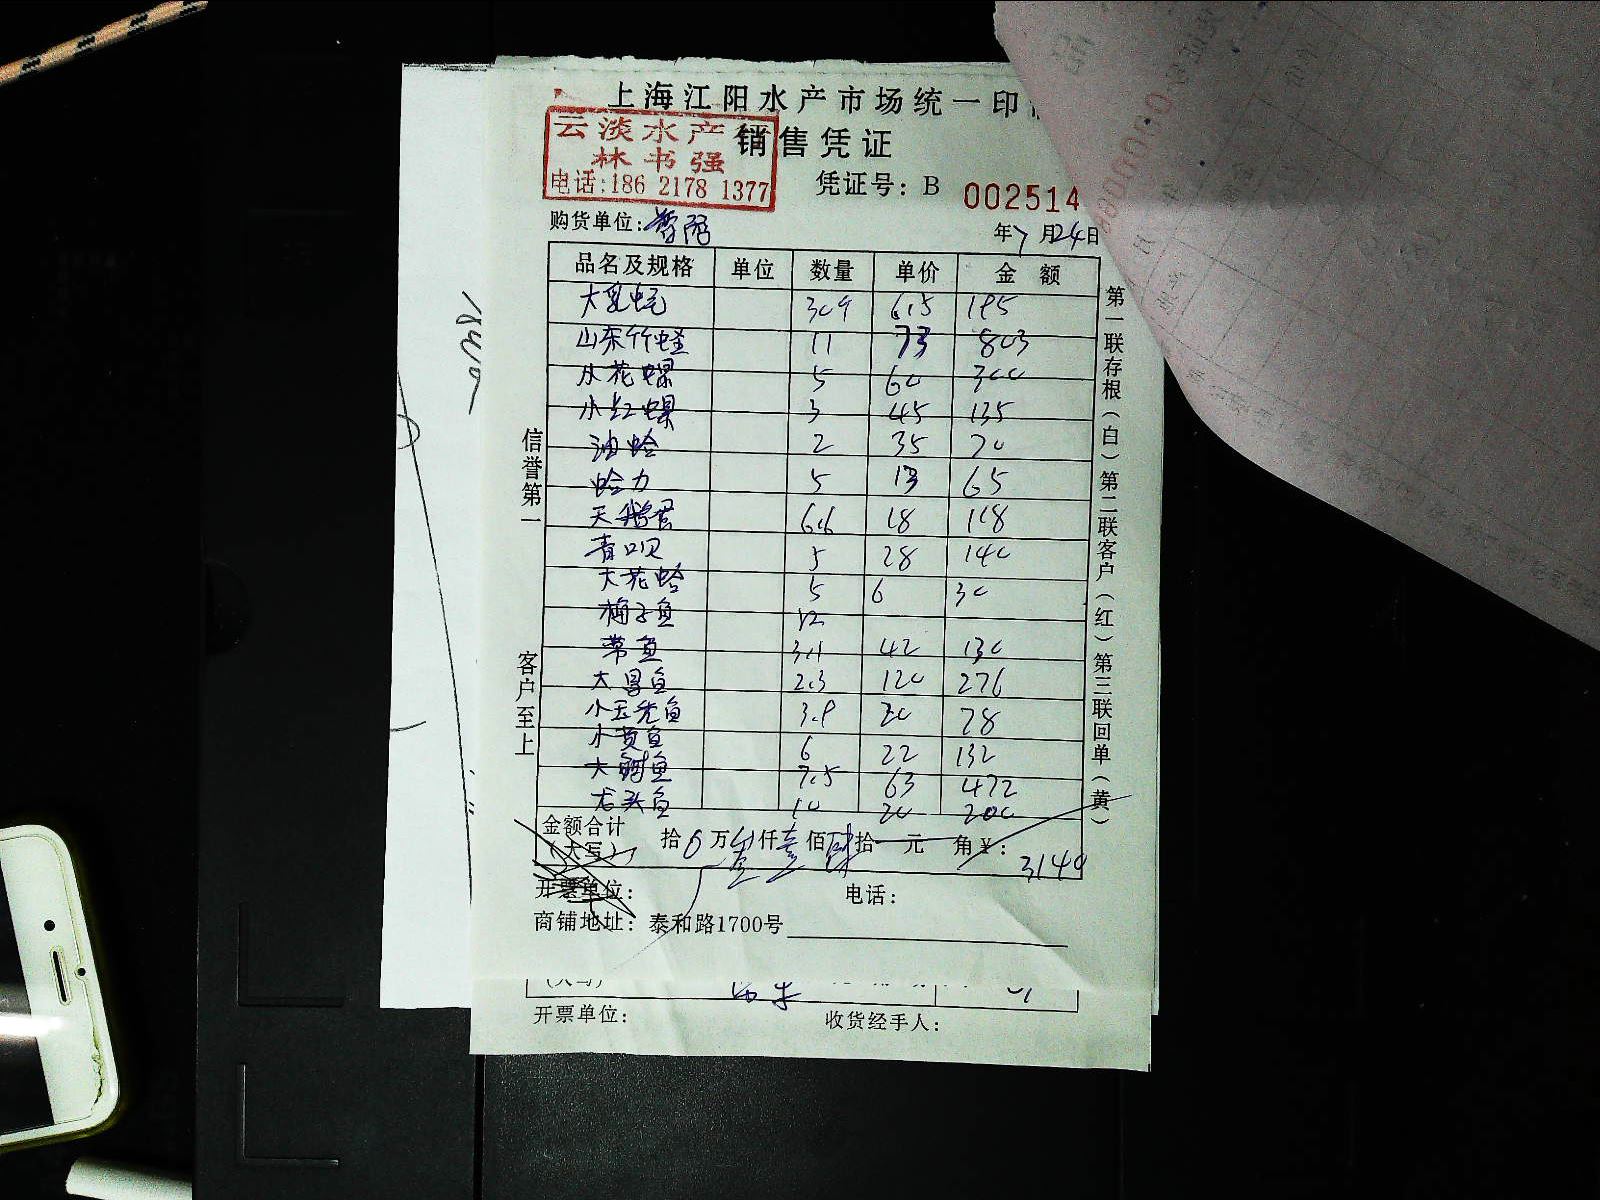 上海江阳水产市场统一印
云淡水产
销售凭证
林书强
电话:186 2178 1377
凭证号: B 002514
购货单位:
年7月24日
品名及规格 单位 数量 单价 金额
大乳蚝 30.9 6.5 195
山东竹蛏 11 73 803
从花螺 5 60 300
小红螺 3 45 135
油蛤 2 35 70
蛤力 5 13 65
天鹅蛋 6.6 18 118
青口贝 5 28 140
大花蛤 5 6 30
梅子鱼 12
带鱼 3.1 42 130
大昌鱼 2.3 120 276
小玉秃鱼 3.9 20 78
小黄鱼 6 22 132
大鲥鱼 7.5 63 472
龙头鱼 10 20 200
金额合计（大写） 拾0万叁仟壹佰肆拾一元 角¥: 3140
开票单位: 电话:
商铺地址: 泰和路1700号
信誉第一
客户至上
第一联存根（白）第二联客户（红）第三联回单（黄）
(大写)
开票单位: 收货经手人: